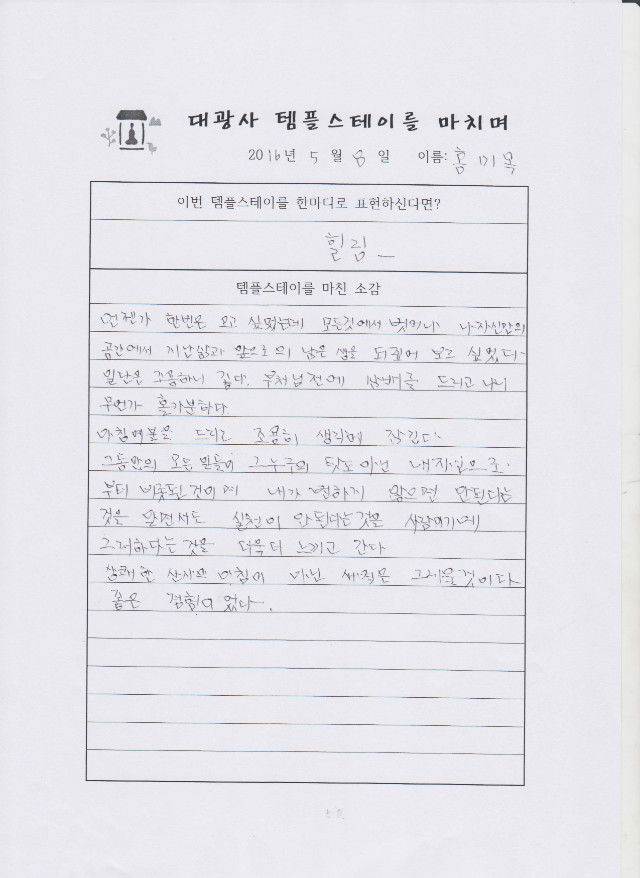 대광사 템플스테이를 마치며
2016년 5월 8일 이름: 홍기목
이번 템플스테이를 한마디로 표현하신다면?
힐링_
템플스테이를 마친 소감
언젠가 한번은 오고 싶었는데 모든것에서 벗어나 나자신만의
공간에서 지난삶과 앞으로의 남은 생을 되짚어 보고 싶었다.
일단은 조용하니 좋다. 부처님전에 삼배를 드리고 나니
무언가 홀가분하다.
아침예불을 드리고 조용히 생각에 잠긴다.
그동안의 모든 일들이 그누구의 탓도 아닌 내자신으로
부터 비롯된것이며 내가 변하지 않으면 안된다는
것을 알면서도 실천이 안된다는것은 사람이기에
그러하다는 것을 더욱더 느끼고 간다
상쾌한 산사의 아침이 내일 새벽은 그리울것이다
좋은 경험이었다.